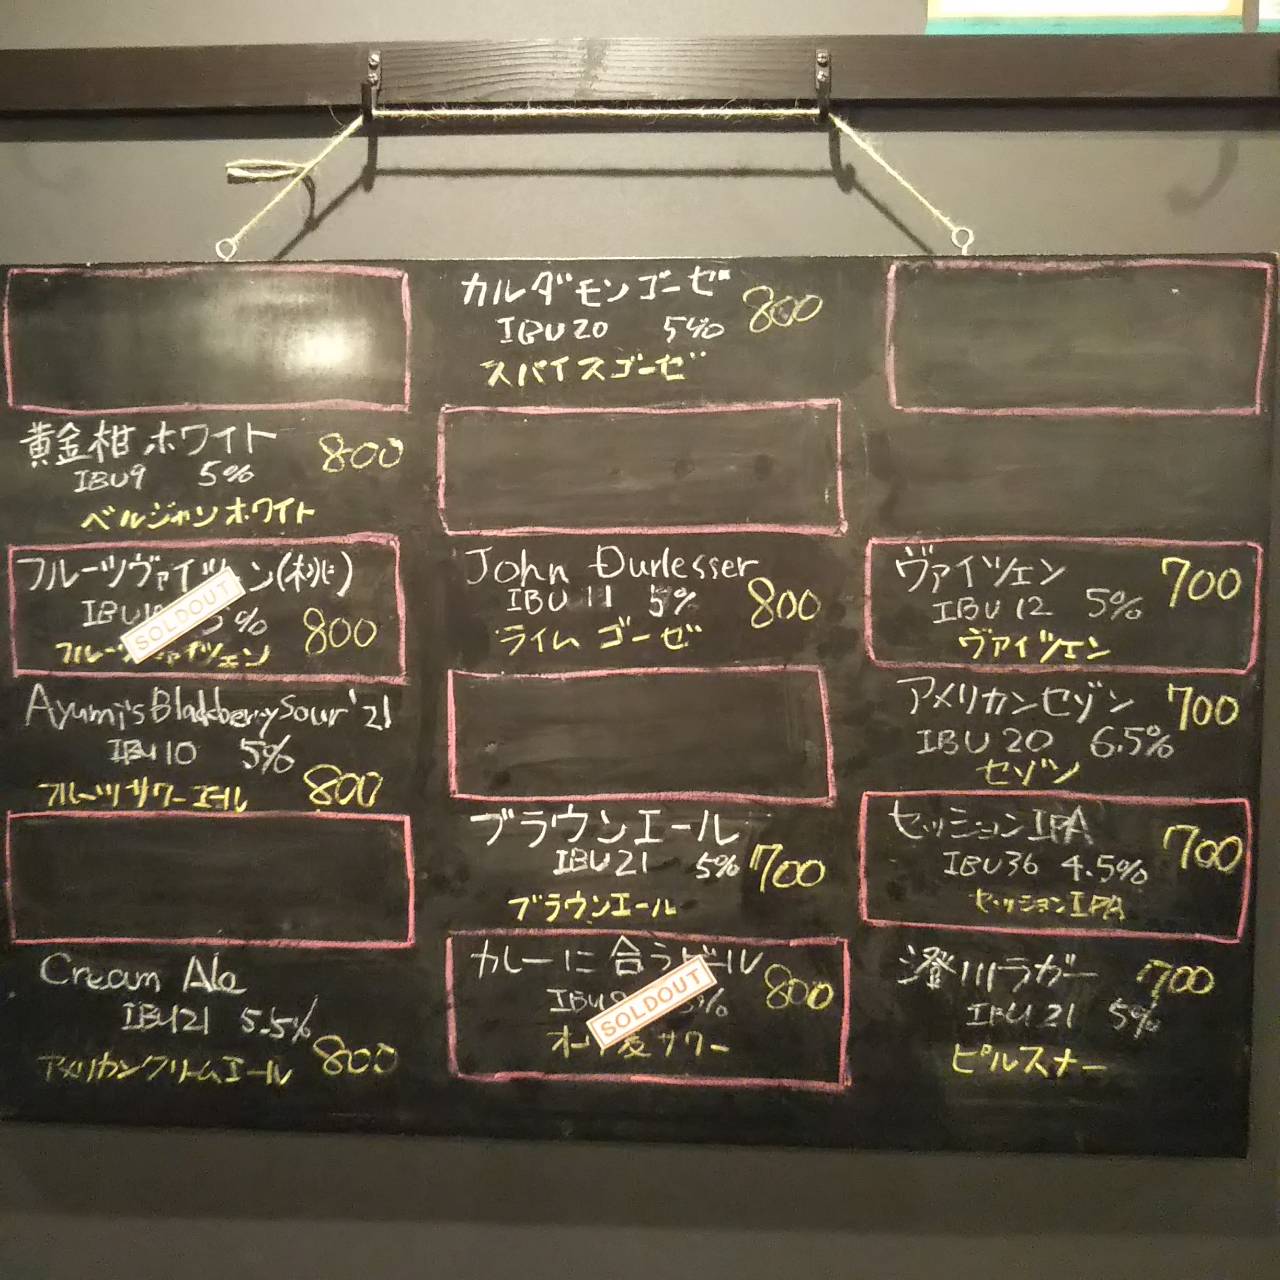 黄金柑ホワイト 800
IBU9 5%
ベルジャンホワイト
フルーツヴァイツェン(桃)
IBU 5% 800
SOLDOUT
フルーツヴァイツェン
Ayumi's Blackberry Sour '21
IBU 10 5%
フルーツサワーエール 800
Cream Ale
IBU21 5.5%
アメリカンクリームエール 800
カルダモンゴーゼ 800
IBU 20 5%
スパイスゴーゼ
John Durlesser
IBU 11 5% 800
ライムゴーゼ
ブラウンエール
IBU 21 5% 700
ブラウンエール
カレーに合うビール
IBU % 800
SOLDOUT
サワー
ヴァイツェン 700
IBU 12 5%
ヴァイツェン
アメリカンセゾン 700
IBU 20 6.5%
セゾン
セッションIPA 700
IBU36 4.5%
セッションIPA
澄川ラガー 700
IBU 21 5%
ピルスナー